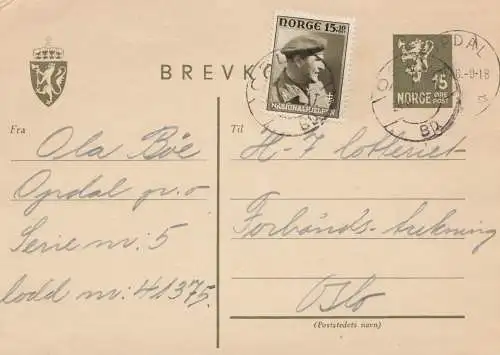 BREVKO
NORGE 15+10
NASJONALHJELPEN
15
NORGE ØRE POST
OPPDAL
Fra
Ola Bøe
Opdal p.o
Serie nr: 5
lodd nr: 41375.
Til
H-7 Lotteriet
Forbånds-trekning
Oslo
(Poststedets navn)